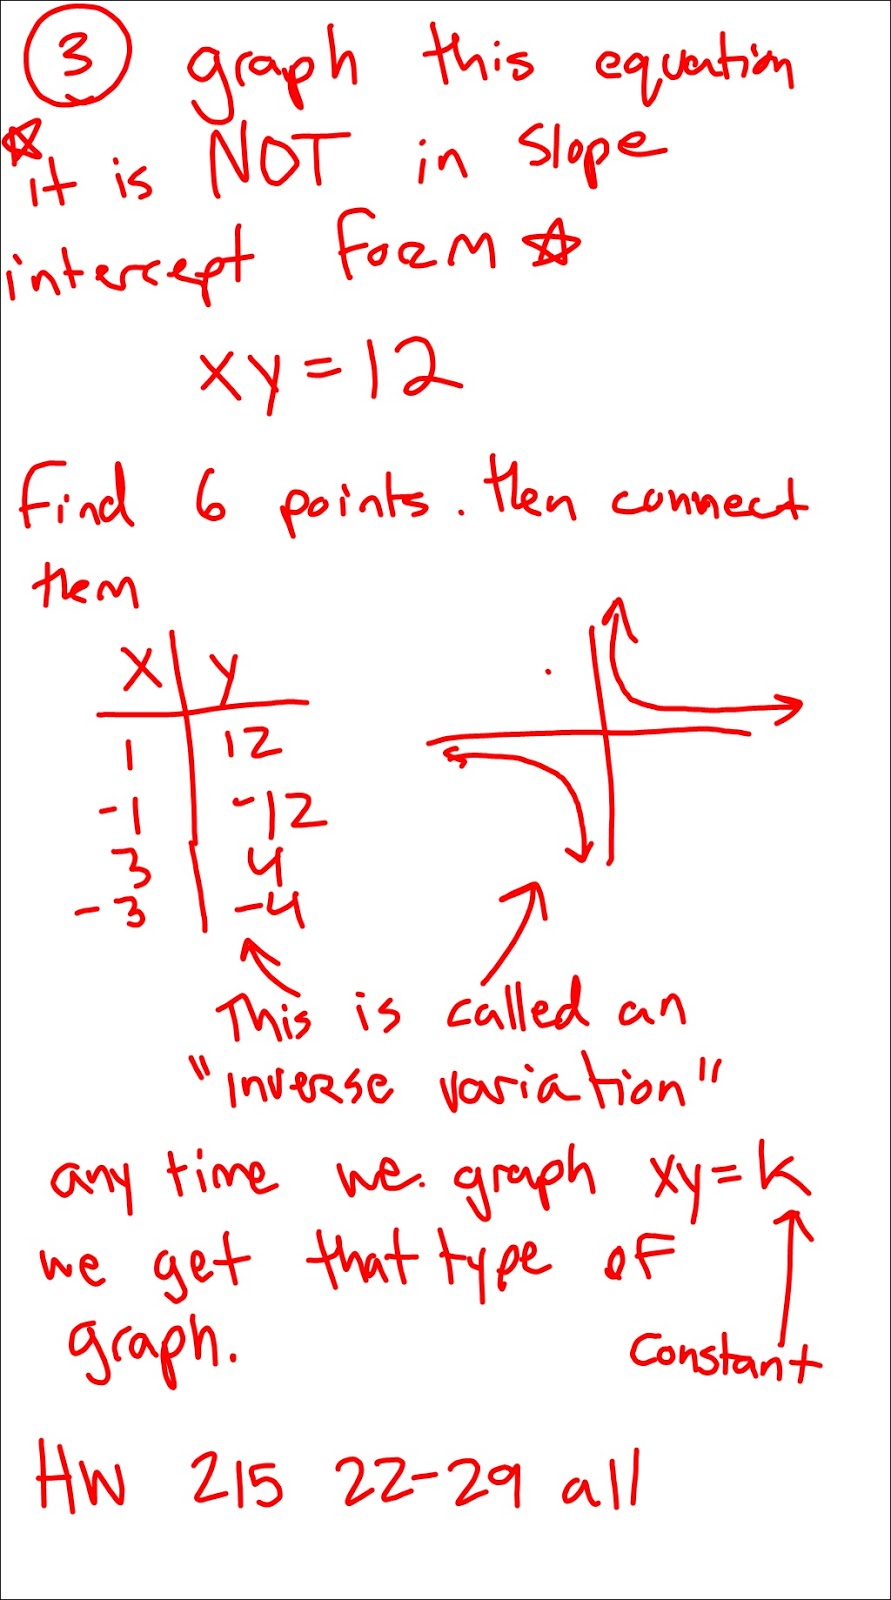 3 graph this equation
it is NOT in slope
intercept Form
xy=12
Find 6 points. then connect
them
x y
1 12
-1 -12
3 4
-3 -4
This is called an
"inverse variation"
any time we graph xy=k
we get that type of
graph.
constant
HW 215 22-29 all